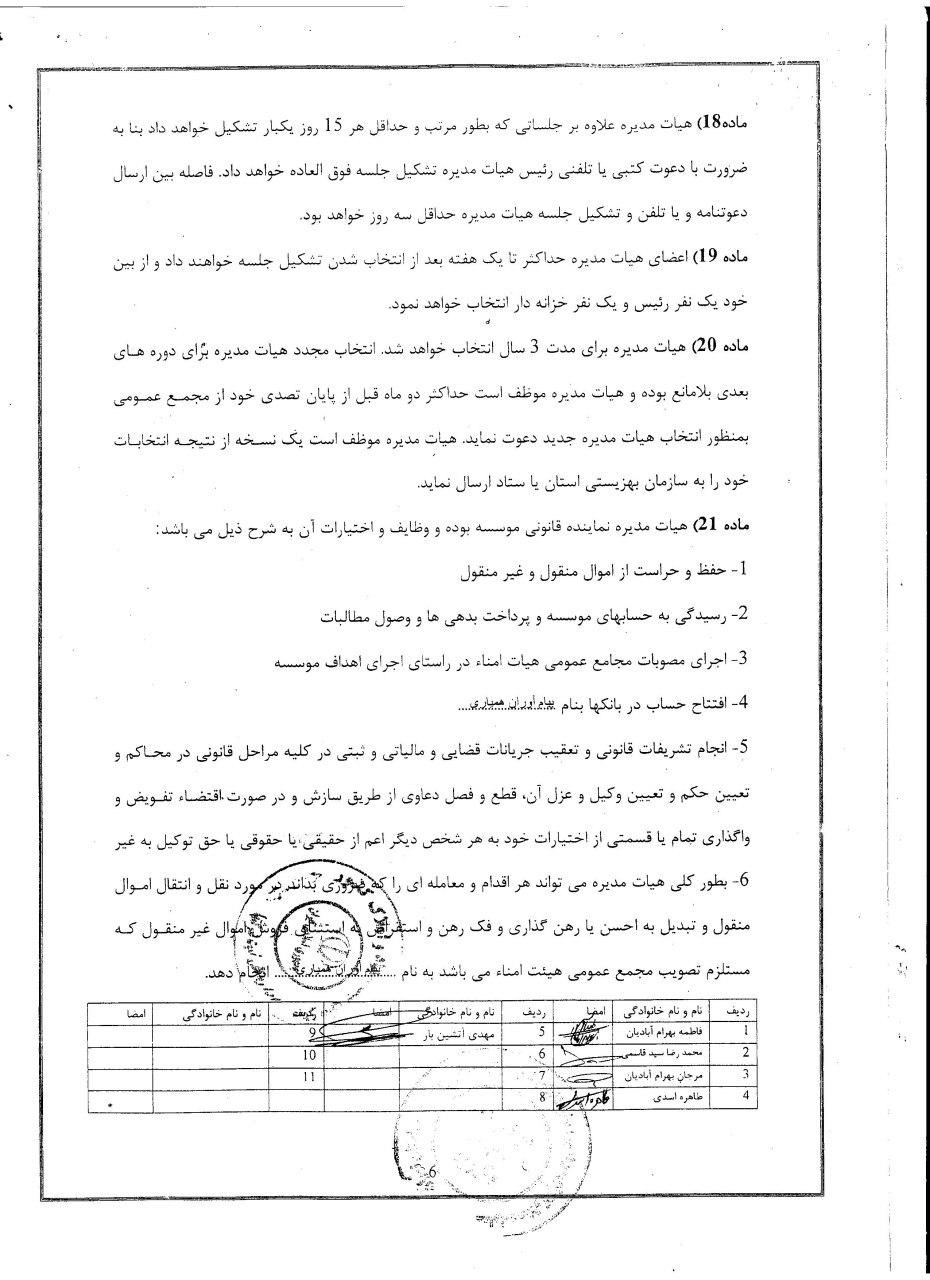 ماده18) هیات مدیره علاوه بر جلساتی که بطور مرتب و حداقل هر 15 روز یکبار تشکیل خواهد داد بنا به
ضرورت با دعوت کتبی یا تلفنی رئیس هیات مدیره تشکیل جلسه فوق العاده خواهد داد. فاصله بین ارسال
دعوتنامه و یا تلفن و تشکیل جلسه هیات مدیره حداقل سه روز خواهد بود.
ماده 19) اعضای هیات مدیره حداکثر تا یک هفته بعد از انتخاب شدن تشکیل جلسه خواهند داد و از بین
خود یک نفر رئیس و یک نفر خزانه دار انتخاب خواهد نمود.
ماده 20) هیات مدیره برای مدت 3 سال انتخاب خواهد شد. انتخاب مجدد هیات مدیره برای دوره های
بعدی بلامانع بوده و هیات مدیره موظف است حداکثر دو ماه قبل از پایان تصدی خود از مجمع عمومی
بمنظور انتخاب هیات مدیره جدید دعوت نماید. هیات مدیره موظف است یک نسخه از نتیجه انتخابات
خود را به سازمان بهزیستی استان یا ستاد ارسال نماید.
ماده 21) هیات مدیره نماینده قانونی موسسه بوده و وظایف و اختیارات آن به شرح ذیل می باشد:
1- حفظ و حراست از اموال منقول و غیر منقول
2- رسیدگی به حسابهای موسسه و پرداخت بدهی ها و وصول مطالبات
3- اجرای مصوبات مجامع عمومی هیات امناء در راستای اجرای اهداف موسسه
4- افتتاح حساب در بانکها بنام پیام آوران همیاری...
5- انجام تشریفات قانونی و تعقیب جریانات قضایی و مالیاتی و ثبتی در کلیه مراحل قانونی در محاکم و
تعیین حکم و تعیین وکیل و عزل آن، قطع و فصل دعاوی از طریق سازش و در صورت اقتضاء تفویض و
واگذاری تمام یا قسمتی از اختیارات خود به هر شخص دیگر اعم از حقیقی یا حقوقی یا حق توکیل به غیر
6- بطور کلی هیات مدیره می تواند هر اقدام و معامله ای را که ضروری بداند در مورد نقل و انتقال اموال
منقول و تبدیل به احسن یا رهن گذاری و فک رهن و استقراض به استثنای فروش اموال غیر منقول که
مستلزم تصویب مجمع عمومی هیئت امناء می باشد به نام ....پیام آوران همیاری.... انجام دهد.
ردیف نام و نام خانوادگی امضا ردیف نام و نام خانوادگی امضا ردیف نام و نام خانوادگی امضا
1 فاطمه بهرام آبادیان 5 مهدی آتشین بار 9
2 محمد رضا سید قاسمی 6 10
3 مرجان بهرام آبادیان 7 11
4 طاهره اسدی 8
6